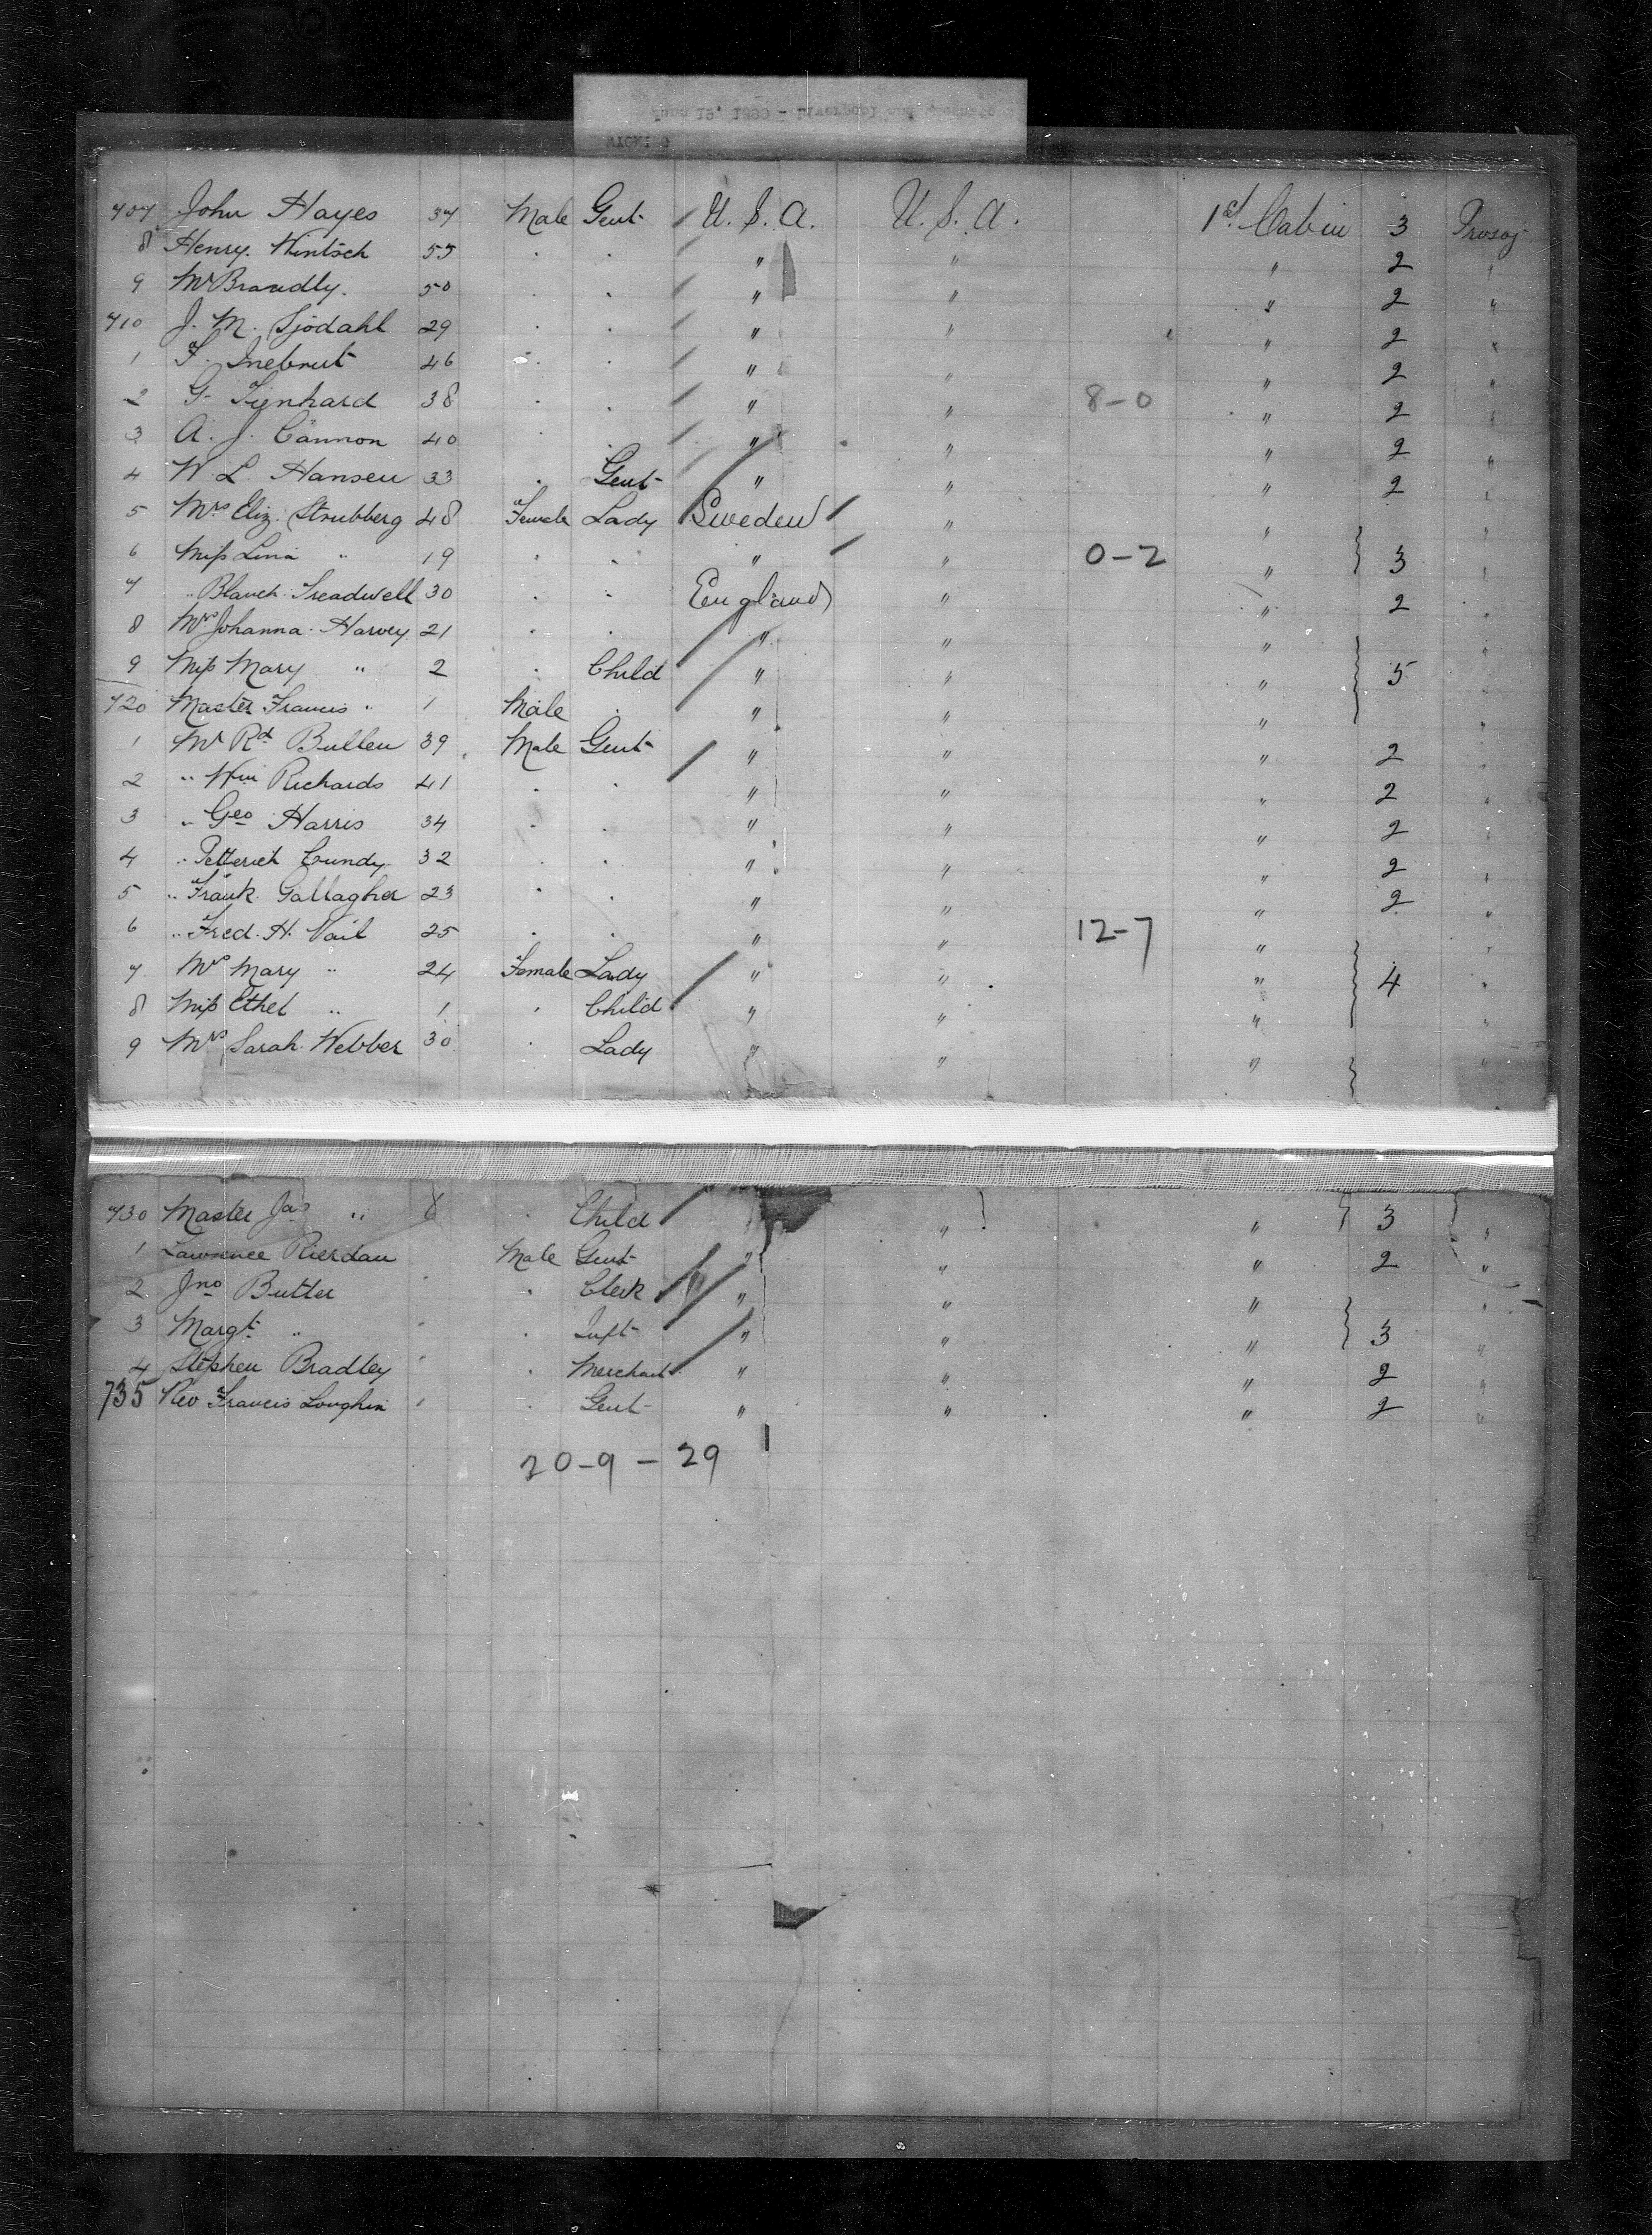 707 John Hayes 37 Male Gent U. S. A. U. S. A. 1st Cabin 3
8 Henry Wintsch 55 . . " " " 2 "
9 Mr Brandly. 50 . . " " " 2 "
710 J. M. Sjödahl 29 . . " " " 2 "
1 F. 46 . . " " " 2 "
2 G. 38 . . " " 8-0 " 2 "
3 A. J. Cannon 40 . . " " " 2 "
4 W. L. Hansen 33 . Gent " " " 2 "
5 Mrs Eliz. Strubberg 48 Female Lady Sweden " " "
6 Miss Lina " 19 . . " " 0-2 " 3 "
7 " Blanch Treadwell 30 . . England " " 2 "
8 Mrs Johanna Harvey 21 . . " " " "
9 Miss Mary " 2 . Child " " " 5 "
720 Master Francis " 1 Male . " " " "
1 Mr Rd Bullen 39 Male Gent " " " 2 "
2 " Wm Richards 41 . . " " " 2 "
3 " Geo Harris 34 . . " " " 2 "
4 " Cundy 32 . . " " " 2 "
5 " Frank Gallagher 23 . . " " " 2 "
6 " Fred. H. Vail 25 . . " " 12-7 " "
7 Mrs Mary " 24 Female Lady " " " 4 "
8 Miss Ethel " 1 . Child " " " "
9 Mrs Sarah Webber 30 . Lady " " " "
730 Master Jas " 8 . Child " " " 3 "
1 Lawrence Rierdan Male Gent " " " 2 "
2 Jno Butler . Clerk " " " "
3 Margt " . Inft " " " 3 "
4 Stephen Bradley . Merchant " " " 2 "
735 Rev Francis Loughin . Gent " " " 2 "
20-9-29